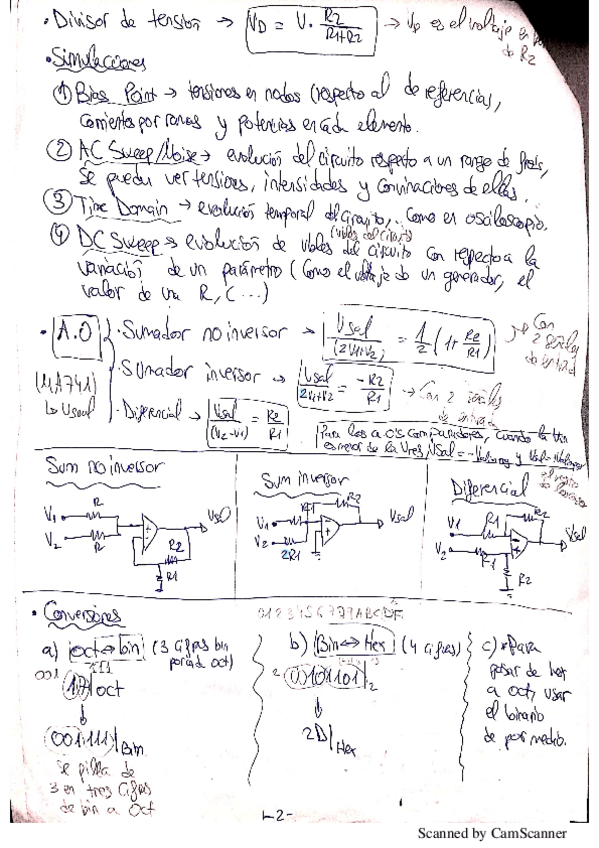 · Divisor de tensión → V_D = V · R2/(R1+R2) → V_D es el voltaje en
de R2
· Simulaciones
① Bias Point → tensiones en nodos (respecto al de referencias,
corrientes por ramas y potencias en cada elemento.
② AC Sweep/Noise → evolución del circuito respecto a un rango de
se pueden ver tensiones, intensidades y convinaciones de ellas.
③ Time Domain → evolución temporal del circuito, como en osciloscopio.
(vbles del circuito)
④ DC Sweep → evolución de vbles del circuito con respecto a la
variación de un parámetro (como el voltaje de un generador, el
valor de una R, C ...)
· A.O
(MA741)
↳ Usual
· Sumador no inversor → Vsal/(2V1+V2) = 1/2 (1+ R2/R1) → Con 2 señales de entrada
· Sumador inversor → Vsal/2V1+V2 = -R2/R1 → Con 2 señales de entrada
· Diferencial → Vsal/(V2-V1) = R2/R1
Para los a.o's comparadores, cuando la Vin
es menor de la Vref, Vsal = -
Sum no inversor
V1 R
V2 R
Vsal
R2
R1
Sum inversor
V1 R1
V2 2R1
R2
Vsal
Diferencial
V1 R1
V2 R1
R2
R2
Vsal
· Conversores
0123456789ABCDEF
a) oct↔bin (3 cifras bin
por cada oct)
001 111
17|oct
↓
001.111|Bin
Se pilla de
3 en tres cifras
de bin a oct
b) Bin↔Hex (4 cifras)
2 (0)101101|2
↓
2D|Hex
c) *Para
pasar de hex
a oct, usar
el binario
de por medio.
-2-
Scanned by CamScanner